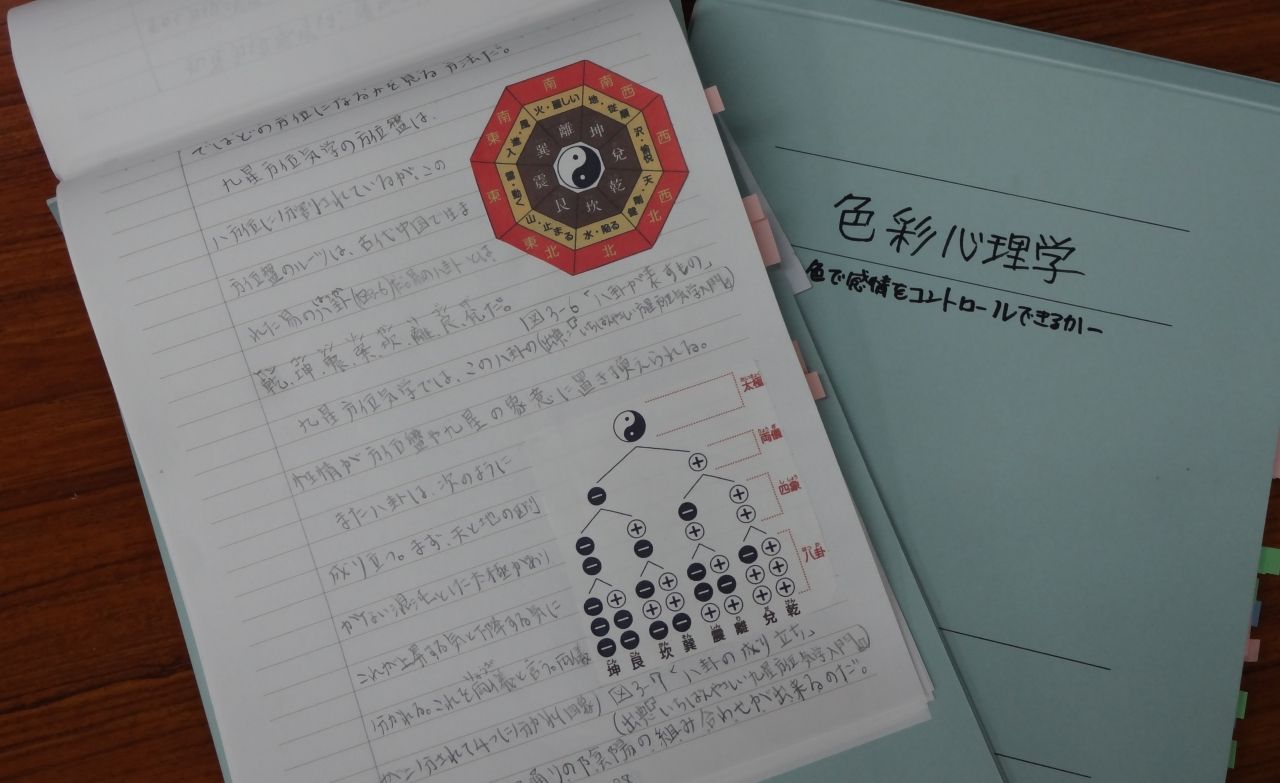 ではどの方位になるかを見る方法だ。
九星方位気学の方位盤は、
八方位に分割されているが、この
方位盤のルーツは、古代中国で生ま
れた易の八卦
乾、坤、震、巽、坎、離、艮、兌だ。
九星方位気学では、この八卦の
性情が方位盤や九星の象意に置き換えられる。
また八卦は、次のように
成り立つ。まず、天と地の区別
がない混沌とした太極があり
これが上昇する気と下降する気に
分かれる。これを両儀と言う。両儀
が二分されて4つに分かれ(四象)
通りの陰陽の組み合わせが出来るのだ。
南
南西
西
西北
北
東北
東
南東
火・麗しい
地・従順
沢・愉悦
天・剛健
水・陥る
山・止まる
雷・動く
離
坤
兌
乾
坎
艮
震
巽
図3-6「八卦が表すもの」
(出典:いちばんやさしい九星方位気学入門)
太極
両儀
四象
八卦
坤 艮 坎 巽 震 離 兌 乾
図3-7「八卦の成り立ち」
(出典:いちばんやさしい九星方位気学入門)
色彩心理学
色で感情をコントロールできるかー